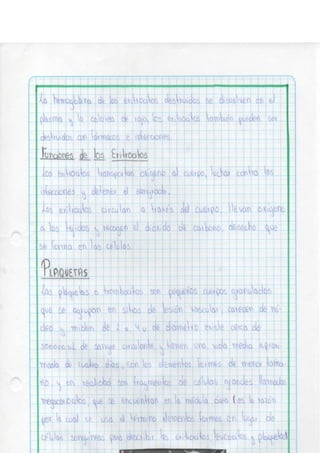 La hemoglobina de los eritrocitos destruidos se disuelven en el
plasma y lo colorea de rojo, los eritrocitos también pueden ser
destruidos con fármacos e infecciones.
Funciones de los Eritrocitos
Los eritrocitos transportan oxígeno al cuerpo, luchar contra las
infecciones y detener el sangrado.
Los eritrocitos circulan a través del cuerpo, llevan oxigeno
a los tejidos y recogen el dioxido de carbono, desecho que
se forma en las células.
PLAQUETAS
Las plaquetas o trombocitos son pequeños cuerpos granulados
que se agrupan en sitios de lesión vascular, carecen de nú-
cleo y miden de 2 a 4 u de diámetro existe cerca de
ul de sangre circulante y tienen una vida media aproxi-
mada de cuatro días, son los elementos formes de menor tama-
ño, y en realidad son fragmentos de células grandes llamadas
megacariocitos que se encuentran en la médula ósea (es la razón
por la cual se usa el término elementos formes en lugar de
células sanguíneas para describir los eritrocitos, leucocitos y plaquetas)